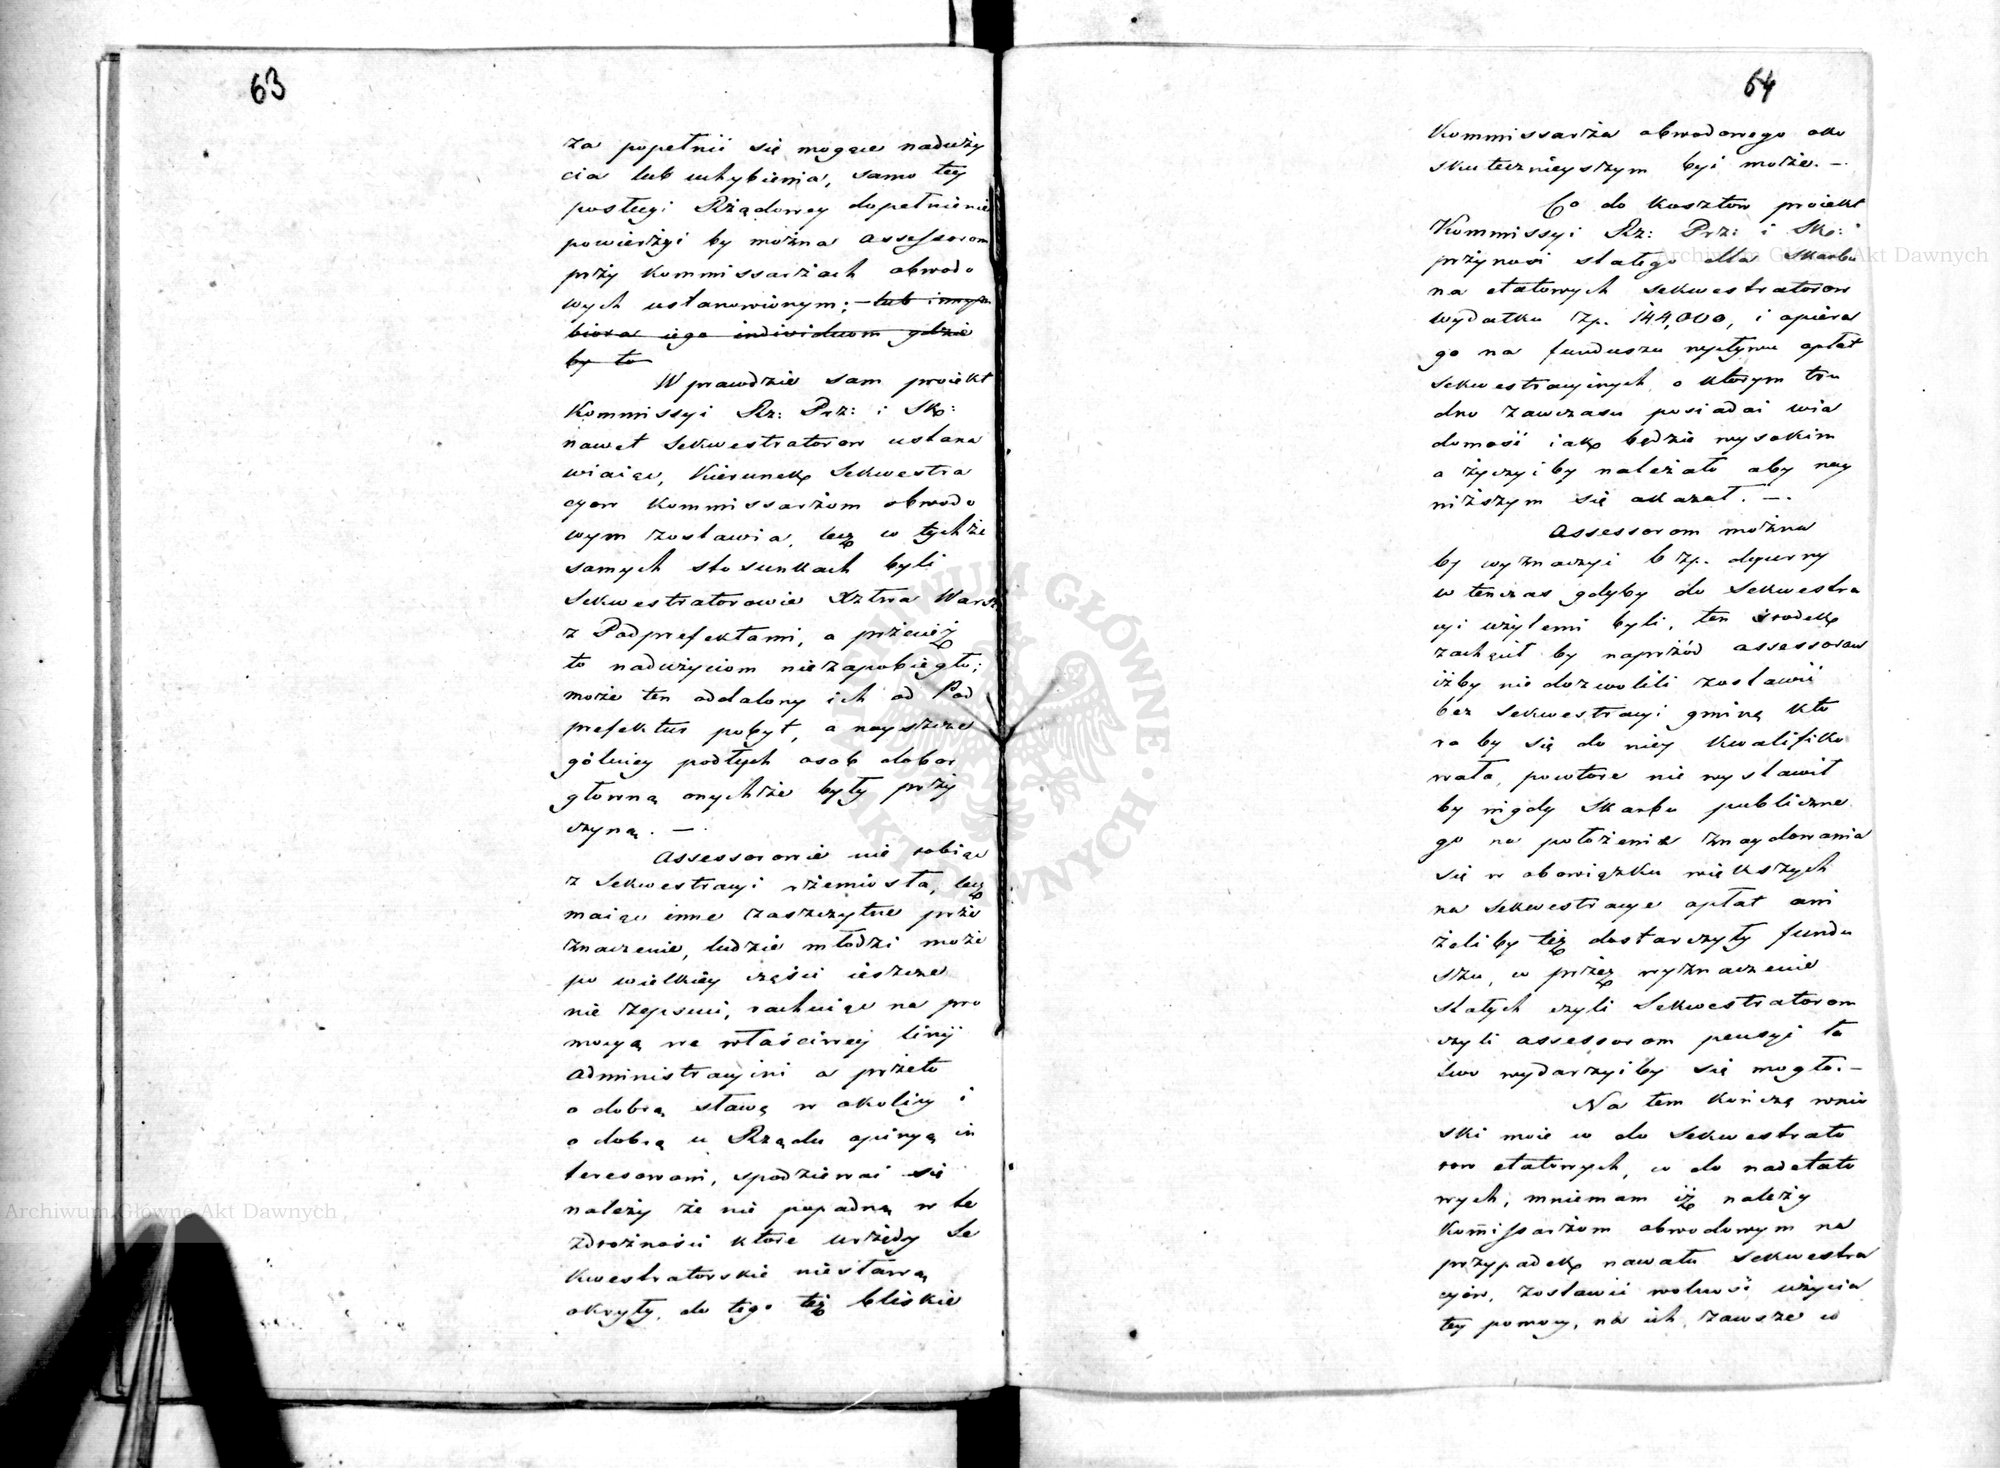 63
za popełnić się mogące naduży
cia lub uchybienia, samo tey
posługi Rządowey dopełnienie
powierzyć by można assessorom
przy Kommissarzach obwodo
wych ustanowionym; – lub innym
biora iego individuom gdzie
by to
Wprawdzie sam proiekt
Kommissyi Rz: Prz: i Sk:
nawet Sekwestratorow ustana
wiaiąc, Kierunek Sekwestra
cyow Kommissarzom obwodo
wym zostawia, lecz w tychże
samych stosunkach byli
Sekwestratorowie Xztwa Warsz
z Podprefektami, a przecięż
to nadużyciom niezapobiegło;
może ten oddalony ich od Pod
prefektur pobyt, a nayszcze
gólniey podłych osob dobor
głowną onychże były przy
czyną. –
Assessorowie nie robiąc
z Sekwestracyi rzemiosła, lecz
maiąc inne zaszczytne prze
znaczenie, ludzie młodzi może
po wielkiey części ieszcze
nie zepsuci, rachuiąc na pro
mocyą we właściwey linii
administracyini a przeto
o dobrą sławę w okolicy i
o dobrą u Rządu opinyą in
teresowani, spodziewać się
należy że nie popadną w te
zdrożności które urzędy Se
kwestratorskie niesławą
okryły, do tego też bliskie
64
Kommissarza obwodowego oko
skutecznieyszym być może. –
Co do kosztow proiekt
Kommissyi Rz: Prz: i Sk:
przynosi stałego dla Skarbu
na etatowych Sekwestratorow
wydatku zp. 144,000, i opiera
go na funduszu wpływu opłat
Sekwestracyinych o którym tru
dno zawczasu posiadać wia
domość iak będzie wysokim
a życzyćby należało aby nay
niższym się okazał. –.
Assessorom można
by wyznaczyć 6 zp. dyurny
w tenczas gdyby do Sekwestra
cyi użytemi byli, ten środek
zachęcił by naprzód assessorow
iżby nie dozwolili zostawić
bez Sekwestracyi gminę kto
ra by się do niey kwalifiko
wała, powtore nie wystawił
by nigdy Skarbu publiczne
go na położenie znaydowania
się w obowiązku większych
na Sekwestracye opłat ani
żeliby też dostarczyły fundu
szu, co przez wyznaczenie
stałych czyli Sekwestratorom
czyli assessorom pensyi ła
two wydarzyćby się mogło. –
Na tem kończą wnio
ski moie co do Sekwestrato
row etatowych, co do nadetato
wych, mniemam iż należy
Komissarzom obwodowym na
przypadek nawału Sekwestra
cyów, zostawić wolność użycia
tey pomocy, na ich zawsze w